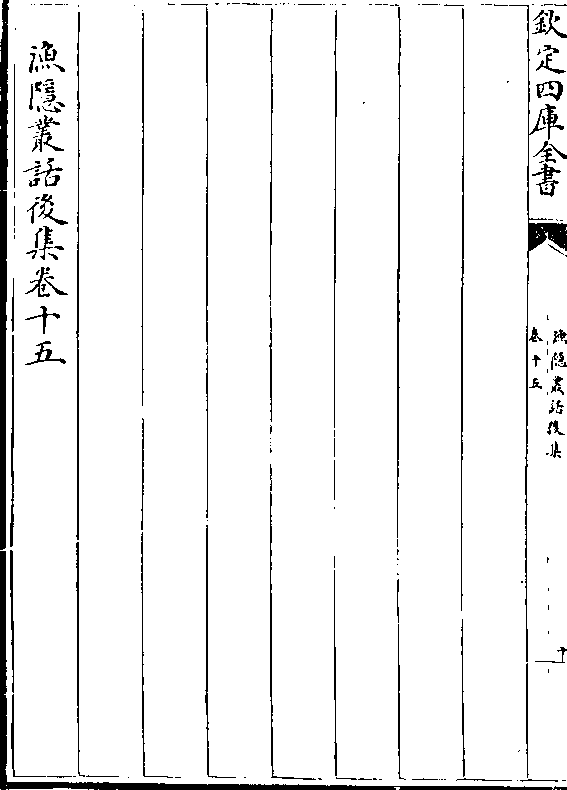 欽定四庫全書
漁隱叢話後集
卷十五
十
漁隱叢話後集卷十五